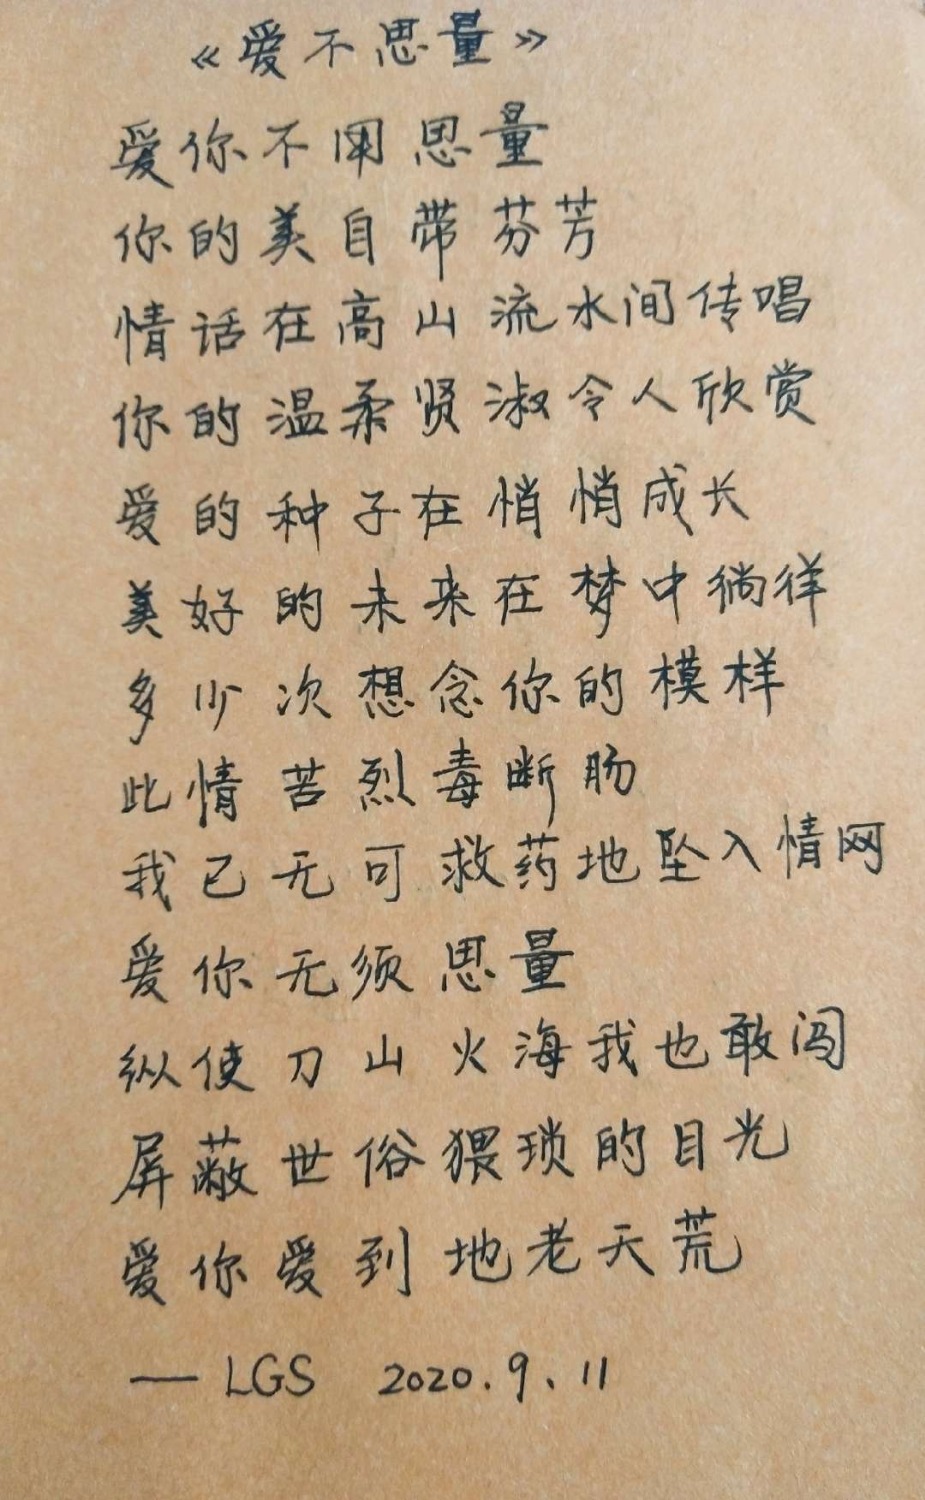 《爱不思量》
爱你不用思量
你的美自带芬芳
情话在高山流水间传唱
你的温柔贤淑令人欣赏
爱的种子在悄悄成长
美好的未来在梦中徜徉
多少次想念你的模样
此情苦烈毒断肠
我已无可救药地坠入情网
爱你无须思量
纵使刀山火海我也敢闯
屏蔽世俗猥琐的目光
爱你爱到地老天荒
— LGS 2020.9.11